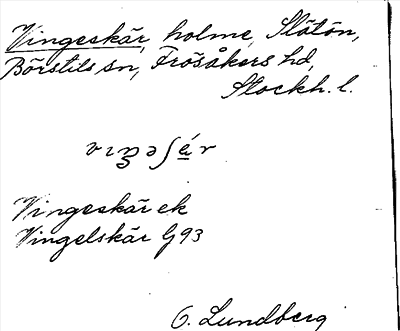 Vingeskär, holme, Slätön,
Börstils sn, Frösåkers hd,
Stockh. l.
Vingeskär ek
Vingelskär G93
G. Lundberg